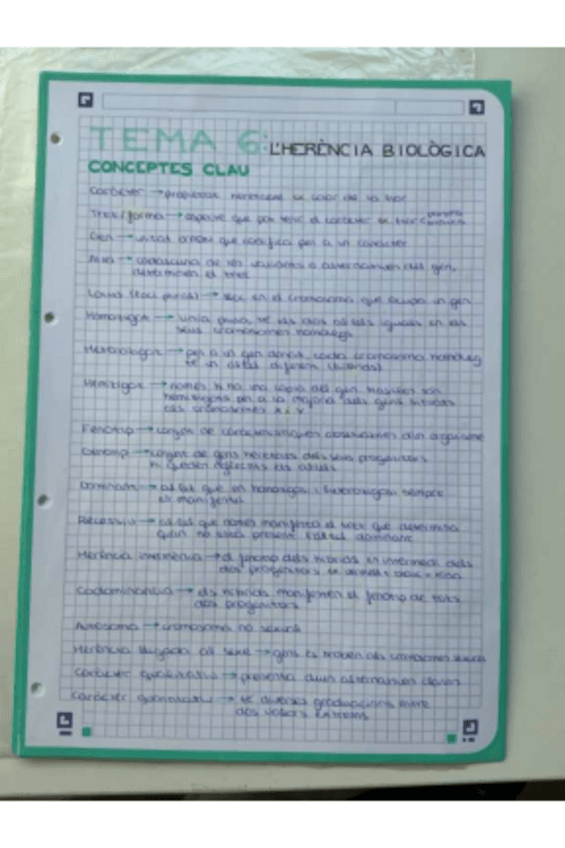 TEMA 6: L'HERÈNCIA BIOLÒGICA
CONCEPTES CLAU
Caràcter → propietat heretable ex color de la flor
Tret/forma → aspecte que pot tenir el caràcter ex
Gen → unitat que codifica per a un caràcter
→ cadascuna de les variants o alternatives del gen,
determinen el tret
Locus (loci plural) → lloc en el cromosoma que ocupa un gen
Homozigot → té els dos al·lels iguals en els
seus cromosomes homòlegs
Heterozigot → per a un gen donat, cada cromosoma homòleg
té un al·lel diferent
Hemizigot → només hi ha una còpia del gen.
per a la majoria dels gens
dels cromosomes X i Y
Fenotip → conjunt de característiques observables d'un organisme
Genotip → conjunt de gens heretats dels seus progenitors
Dominant → al·lel que en homozigosi i heterozigosi sempre
es manifesta
Recessiu → al·lel que només manifesta el tret que determina
quan no està present l'al·lel dominant
Herència intermèdia → el fenotip dels híbrids és intermedi dels
dos progenitors
Codominància → els híbrids manifesten el fenotip de tots
dos progenitors
Autosoma → cromosoma no sexual
Herència lligada al sexe → gens es troben als cromosomes sexuals
Caràcter qualitatiu → presenta dues alternatives clares
Caràcter quantitatiu → té diverses graduacions entre
dos valors extrems